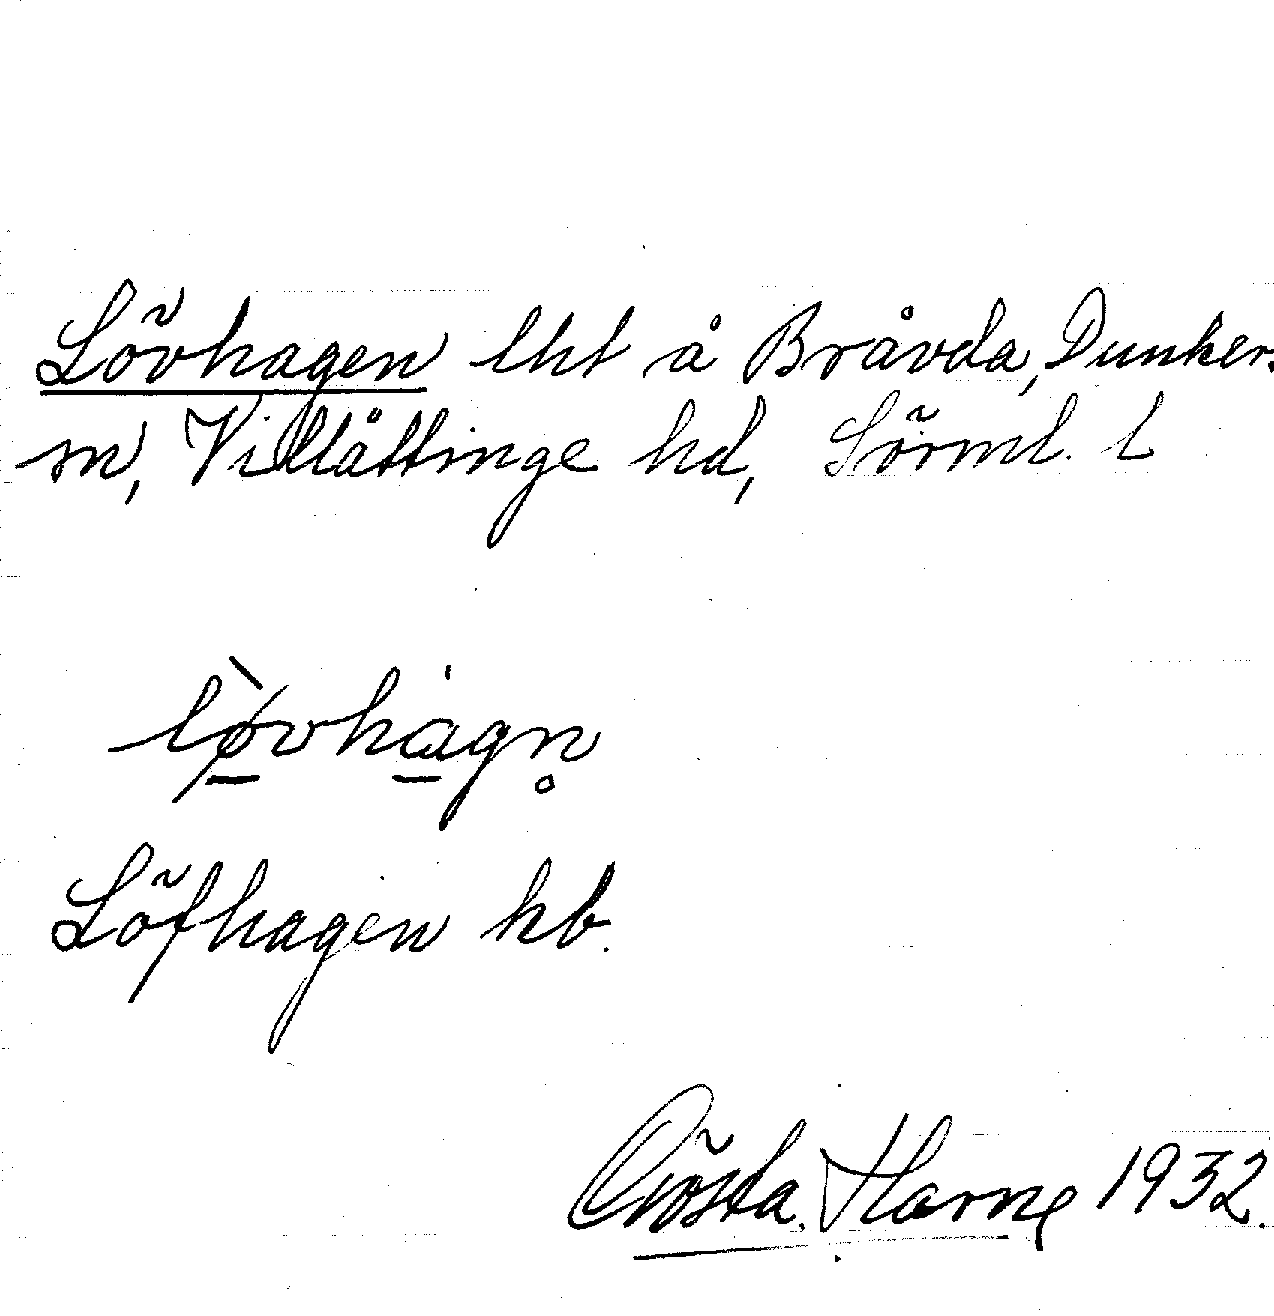 Lövhagen lht å Bråvda, Dunker.
sn, Villåttinge hd, Sörml. l
lø̱̀vha̱gn̥
Löfhagen kb.
Gösta Harne 1932.